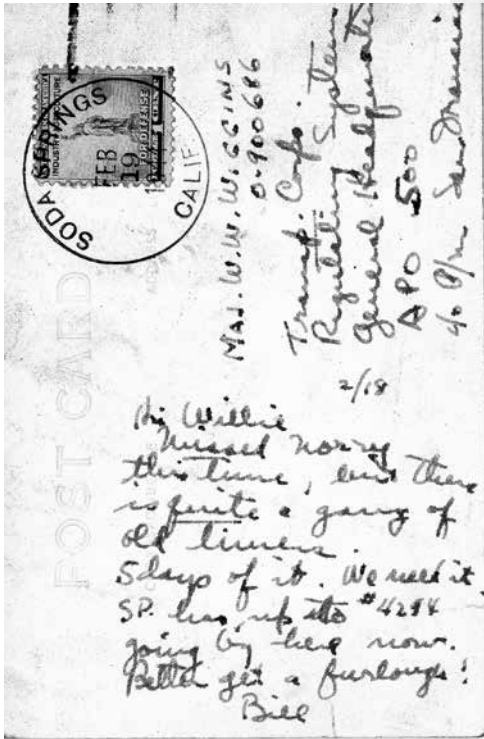 SODA SPRINGS
CALIF.
FEB
19
INDUSTRY AGRICULTURE
FOR DEFENSE
POST CARD
MAJ. W.W. WIGGINS
0-900686
Transp. Corps.
Regulating System
General Headquarters
APO 500
c/o P/m San Francisco
2/18
Hi Willie
Missed Norry
this time, but there
is quite a gang of
old timers.
5 days of it. We need it
SP. has up to #4294
going by here now.
Better get a furlough!
Bill